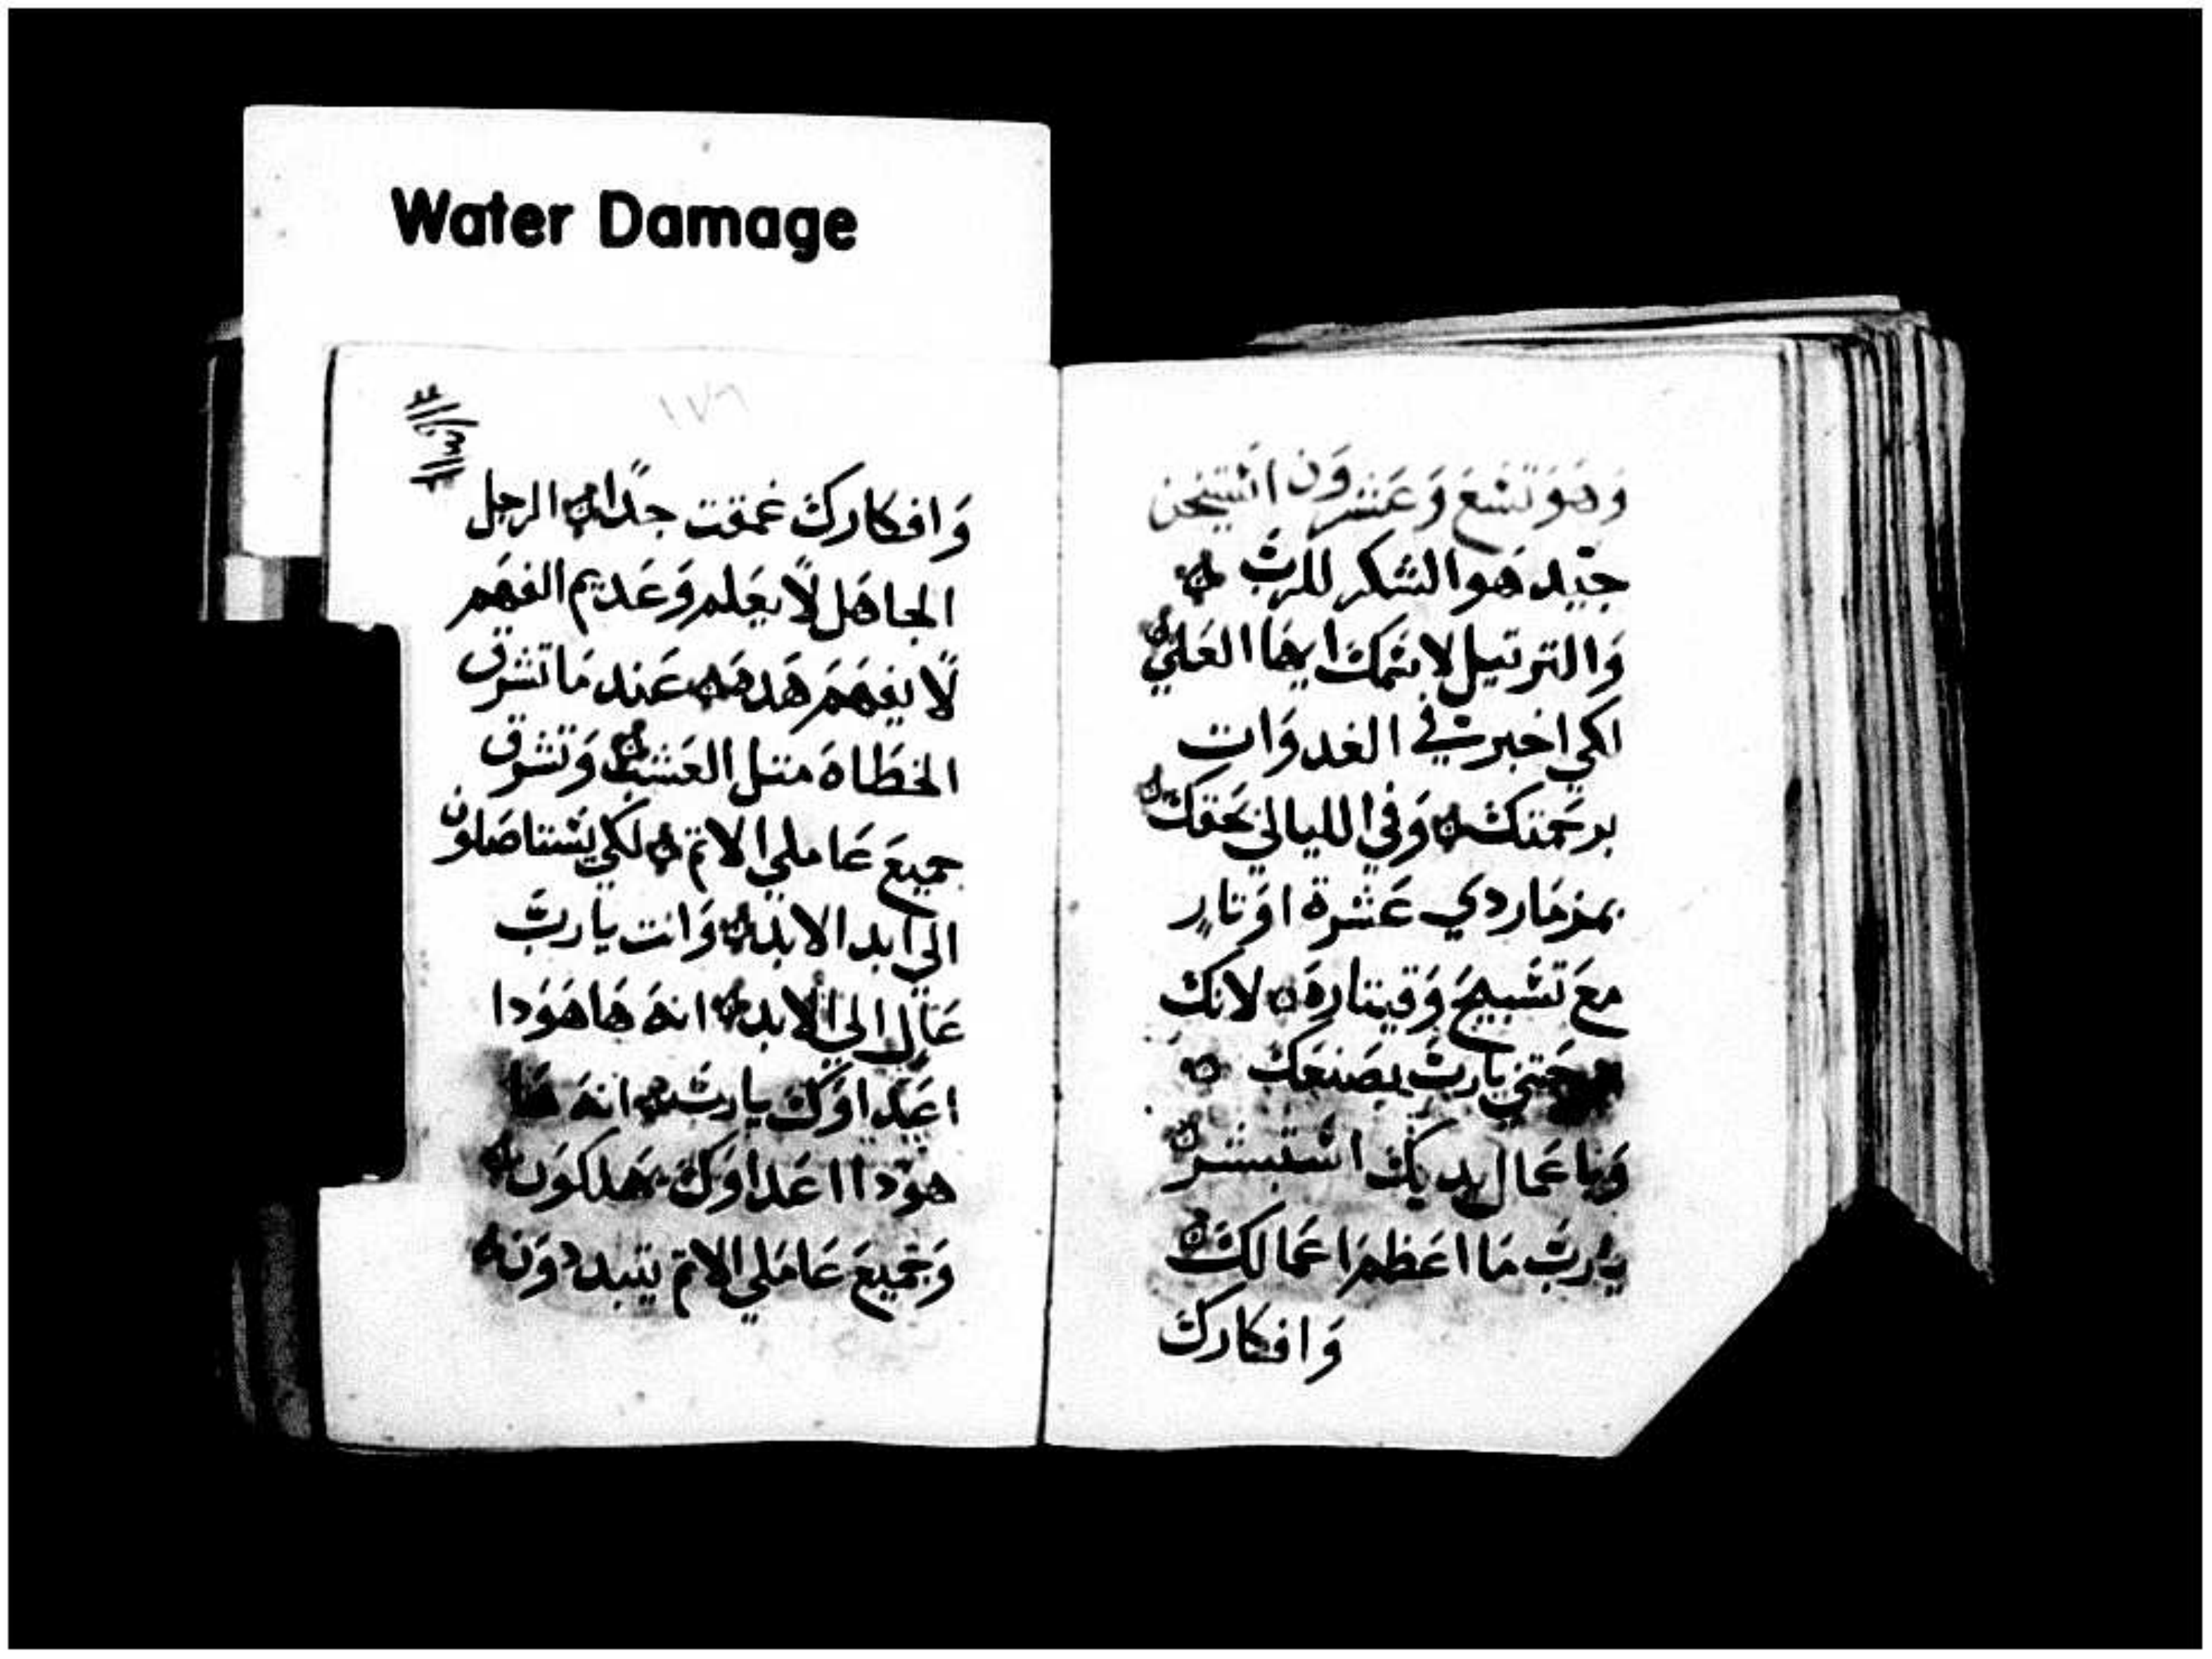 Water Damage
وَهوَ تسَعَ وَعَشرون استيخن
جيّد هوا الشكر للربّ
وَالترتيل لاسَمك ايها العَلي
لكي اخبر في الغدوَات
برحَمتك وَفي الليالي بحَقك
بمزمَار دي عَشرة اوَتار
معَ تسَبيحَ وَقيتارهَ لانك
يارب بصَنعَك
وَباعَمال يديك استبشر
ياربّ مَا اعَظمَ اعَمالك
وَافكارك
١٧٦
وَافكارك عمَقت جدًا الرجل
الجاهَل لا يعَلم وَعَديم الفهَم
لا يفهَمَ هَدهَ عَند مَا تشرق
الخطَاهَ متل العَشب وَتشرق
جميعَ عَاملي الاتم لكي يسَتاصَلون
الي ابد الابد وَانت ياربّ
عَال الي الابد انهَ هَاهَوَدا
اعَداوَك يارب انهَ هَا
هوَدا اعَداوَك يهَلكوَن
وَجميعَ عَامَلي الاتم يتبددوَن